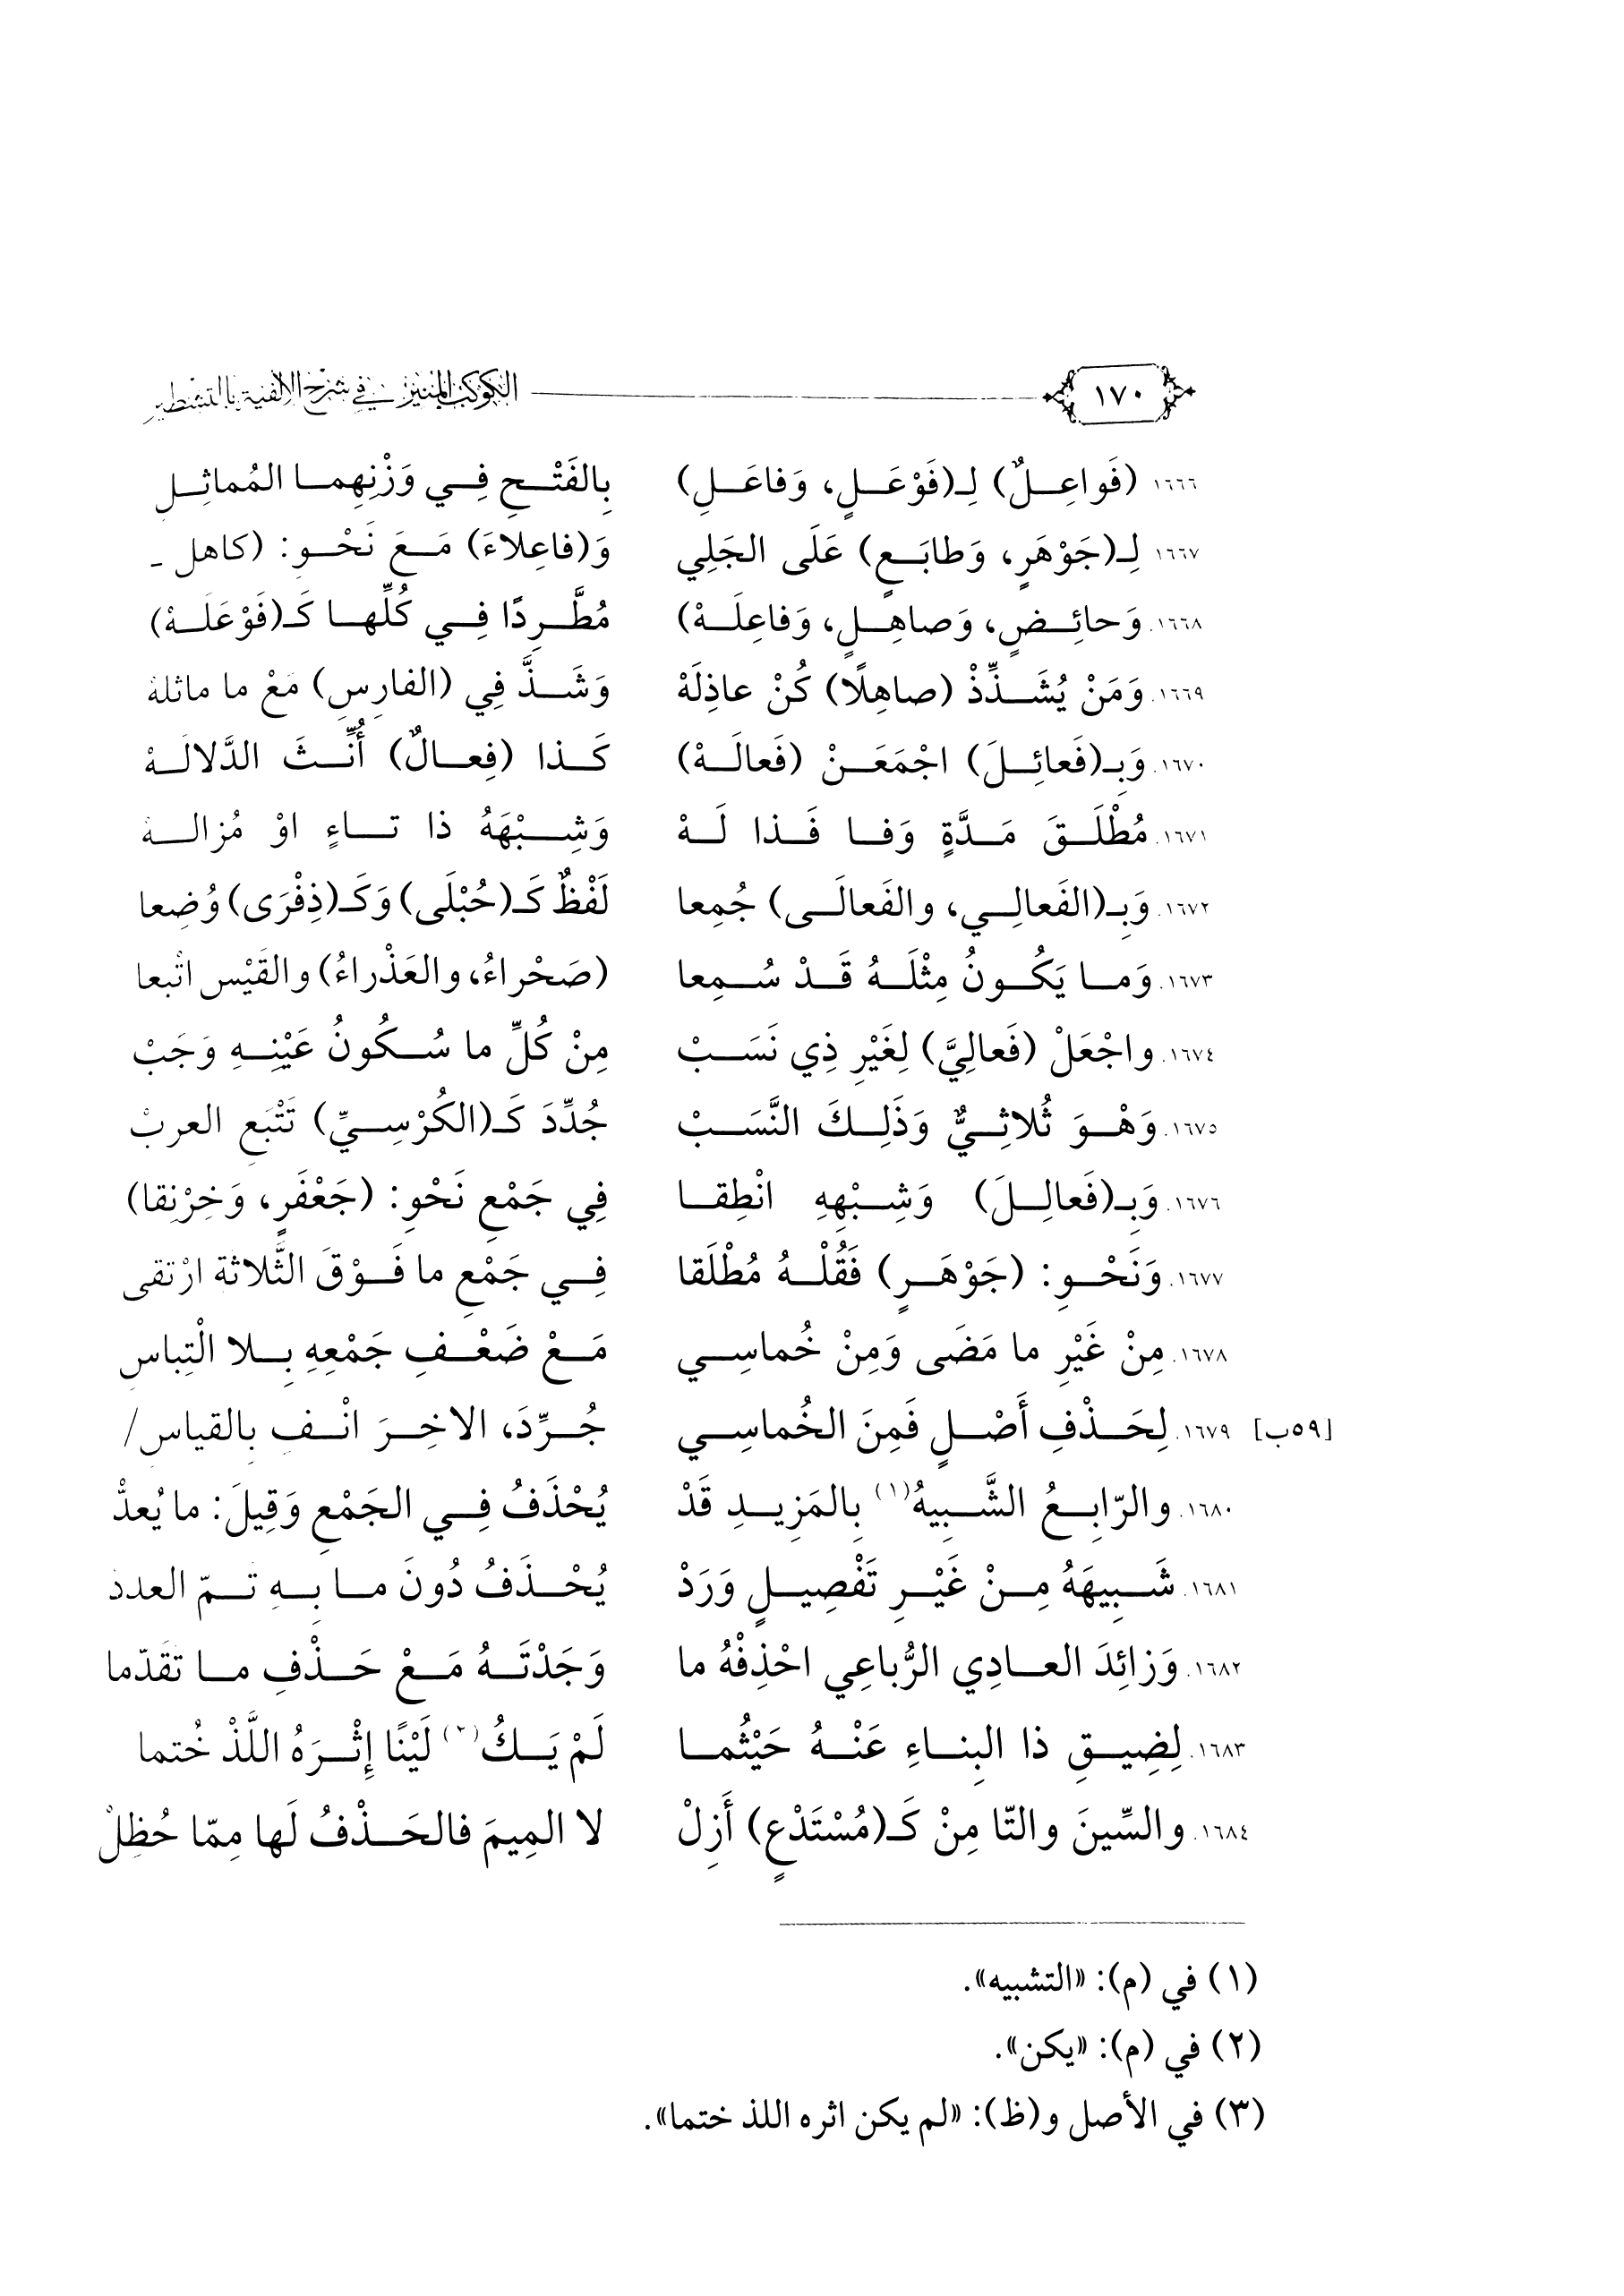 ١٧٠ الكوكب المنير في شرح الألفية بالتشطير
١٦٦٦. (فَواعِلٌ) لِـ(فَوْعَلٍ، وَفاعَلِ) بِالفَتْحِ فِي وَزْنِهِما المُماثِلِ
١٦٦٧. لِـ(جَوْهَرٍ، وَطابَعٍ) عَلَى الجَلِي وَ(فاعِلاءَ) مَعَ نَحْوِ: (كاهل -
١٦٦٨. وَحائِضٍ، وَصاهِلٍ، وَفاعِلَهْ) مُطَّرِدًا فِي كُلِّها كَـ(فَوْعَلَهْ)
١٦٦٩. وَمَنْ يُشَذِّذْ (صاهِلًا) كُنْ عاذِلَهْ وَشَذَّ فِي (الفارِسِ) مَعْ ما ماثلهْ
١٦٧٠. وَبِـ(فَعائِلَ) اجْمَعَنْ (فَعالَهْ) كَذا (فِعالٌ) أُنِّثَ الدَّلالَهْ
١٦٧١. مُطْلَقَ مَدَّةٍ وَفا فَذا لَهْ وَشِبْهَهُ ذا تاءٍ اوْ مُزالهْ
١٦٧٢. وَبِـ(الفَعالِي، والفَعالَى) جُمِعا لَفْظٌ كَـ(حُبْلَى) وَكَـ(ذِفْرَى) وُضِعا
١٦٧٣. وَما يَكُونُ مِثْلَهُ قَدْ سُمِعا (صَحْراءُ، والعَذْراءُ) والقَيْس اتْبعا
١٦٧٤. واجْعَلْ (فَعالِيَّ) لِغَيْرِ ذِي نَسَبْ مِنْ كُلِّ ما سُكُونُ عَيْنِهِ وَجَبْ
١٦٧٥. وَهْوَ ثُلاثِيٌّ وَذَلِكَ النَّسَبْ جُدِّدَ كَـ(الكُرْسِيِّ) تَتْبَعِ العربْ
١٦٧٦. وَبِـ(فَعالِلَ) وَشِبْهِهِ انْطِقا فِي جَمْعِ نَحْوِ: (جَعْفَرٍ، وَخِرْنِقا)
١٦٧٧. وَنَحْوِ: (جَوْهَرٍ) فَقُلْهُ مُطْلَقا فِي جَمْعِ ما فَوْقَ الثَّلاثة ارْتقى
١٦٧٨. مِنْ غَيْرِ ما مَضَى وَمِنْ خُماسِي مَعْ ضَعْفِ جَمْعِهِ بِلا الْتِباسِ
[٥٩ب] ١٦٧٩. لِحَذْفِ أَصْلٍ فَمِنَ الخُماسِي جُرِّدَ، الاخِرَ انْفِ بِالقياس/
١٦٨٠. والرّابِعُ الشَّبِيهُ(١) بِالمَزِيدِ قَدْ يُحْذَفُ فِي الجَمْعِ وَقِيلَ: ما يُعدّْ
١٦٨١. شَبِيهَهُ مِنْ غَيْرِ تَفْصِيلٍ وَرَدْ يُحْذَفُ دُونَ ما بِهِ تمّ العددْ
١٦٨٢. وَزائِدَ العادِي الرُّباعِي احْذِفْهُ ما وَجَدْتَهُ مَعْ حَذْفِ ما تقَدّما
١٦٨٣. لِضِيقِ ذا البِناءِ عَنْهُ حَيْثُما لَمْ يَكُ(٢) لَيْنًا إِثْرَهُ اللَّذْ خُتما
١٦٨٤. والسِّينَ والتّا مِنْ كَـ(مُسْتَدْعٍ) أَزِلْ لا المِيمَ فالحَذْفُ لَها مِمّا حُظِلْ
(١) في (م): «التشبيه».
(٢) في (م): «يكن».
(٣) في الأصل و(ظ): «لم يكن اثره اللذ ختما».